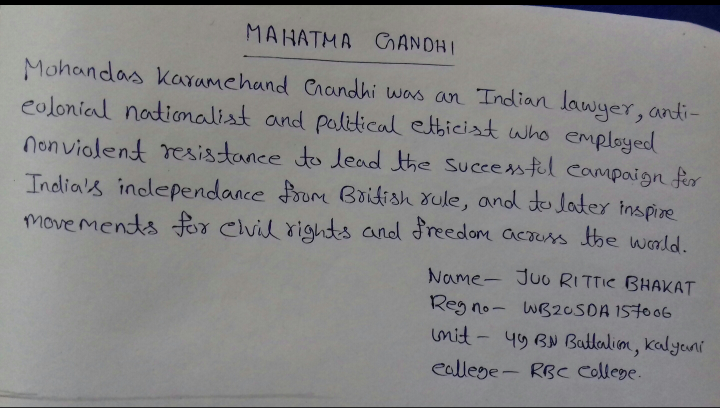 MAHATMA GANDHI
Mohandas Karamchand Gandhi was an Indian lawyer, anti-
colonial nationalist and political ethicist who employed
nonviolent resistance to lead the successful campaign for
India's independance from British rule, and to later inspire
movements for civil rights and freedom across the world.
Name - JUO RITTIC BHAKAT
Reg no - WB20SDA157006
Unit - 49 BN Battalion, Kalyani
College - RBC College.